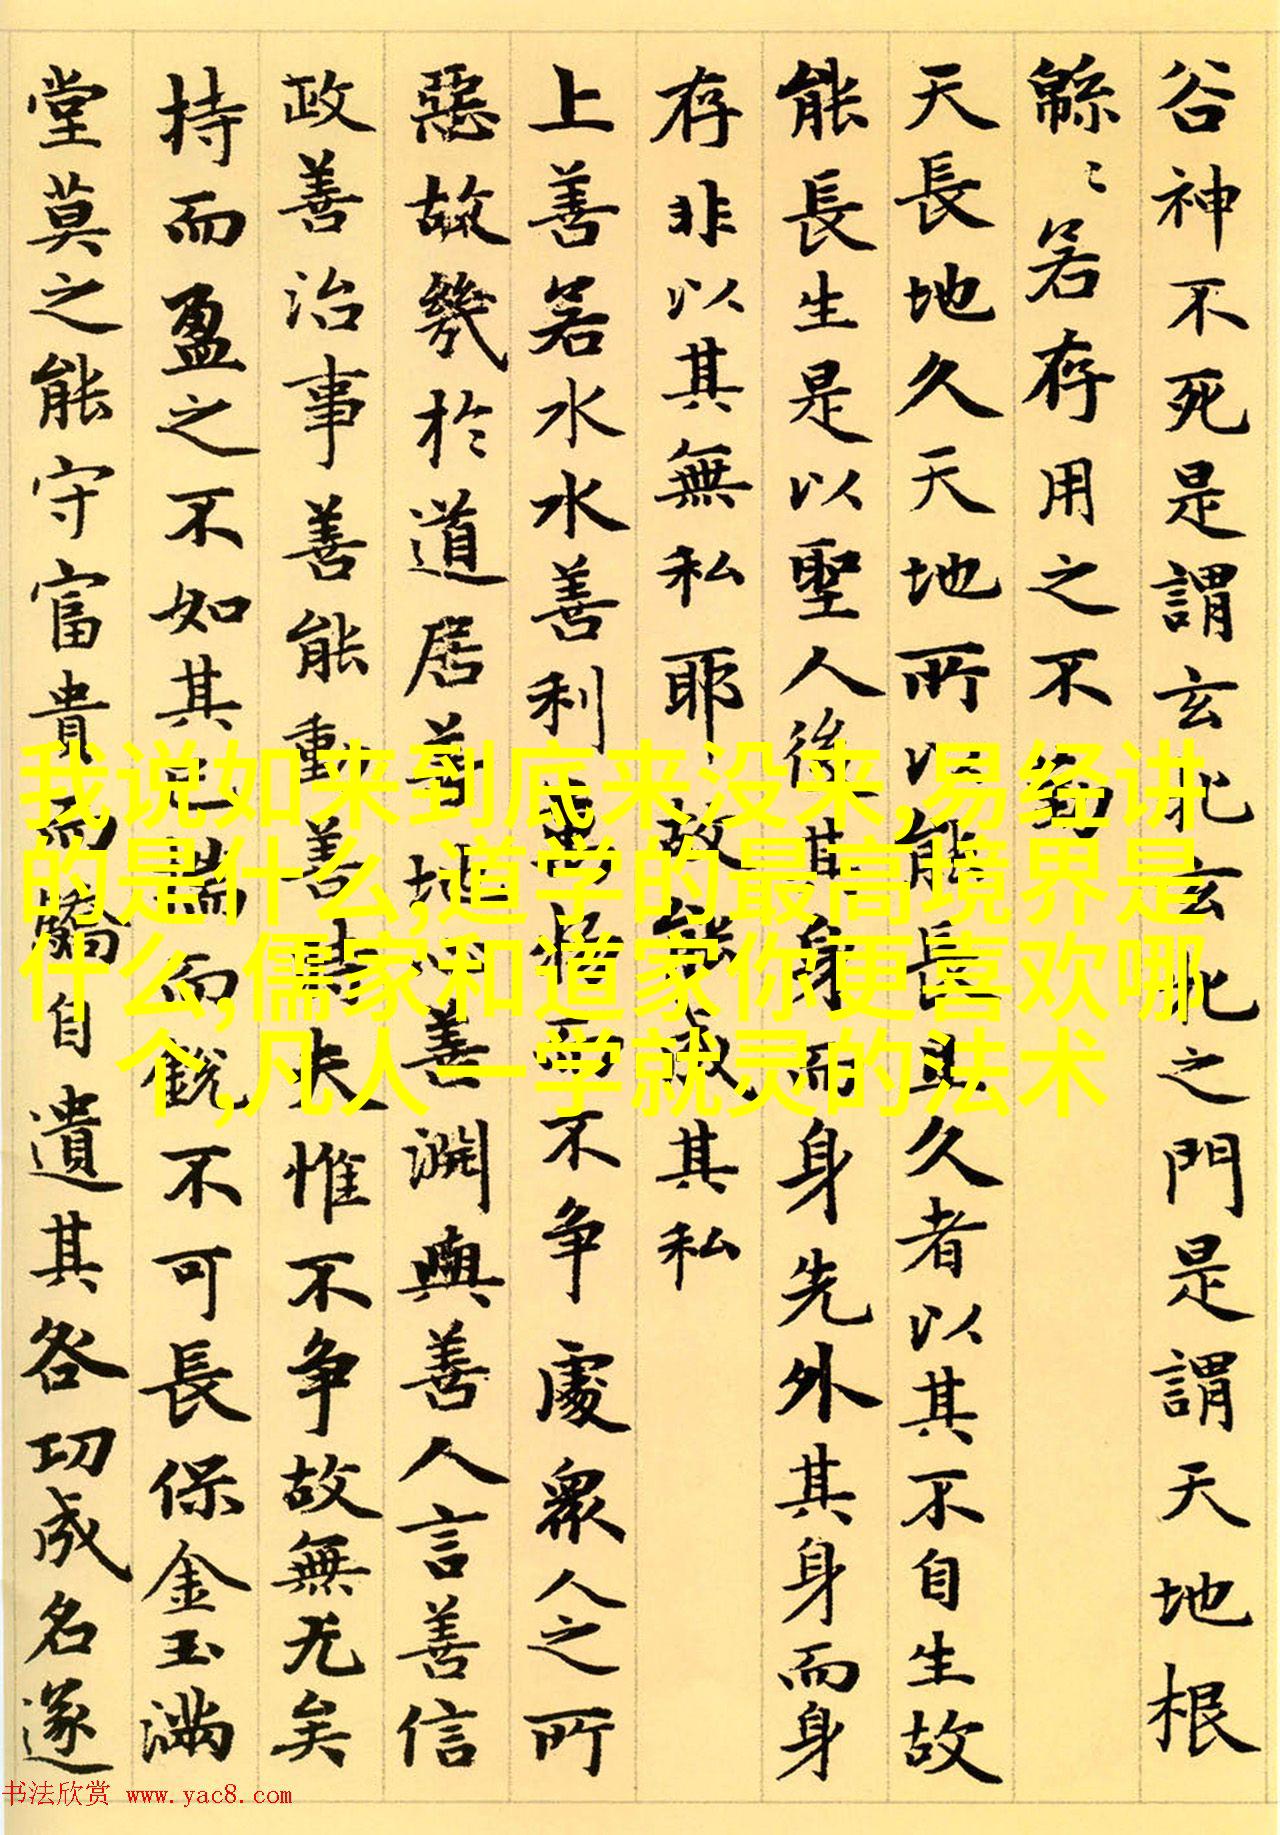 谷神不死是謂玄牝玄牝之門是謂天地根
緜〻若存用之不勤
天長地久天地所以能長且久者以其不自生故
能長生是以聖人後其身而身先外其身而身
存非以其無私耶故能成其私
上善若水水善利萬物而不争處衆人之所
惡故幾於道居善地心善淵與善人言善信
政善治事善能動善時夫惟不争故無尤矣
持而盈之不如其已揣而銳不可長保金玉滿
堂莫之能守富貴而驕自遺其咎功成名遂
我说如来到底来没来,易经讲
的是什么,道学的最高境界是
什么,儒家和道家你更喜欢哪
个,凡人一学就灵的法术
书法欣赏 www.yac8.com